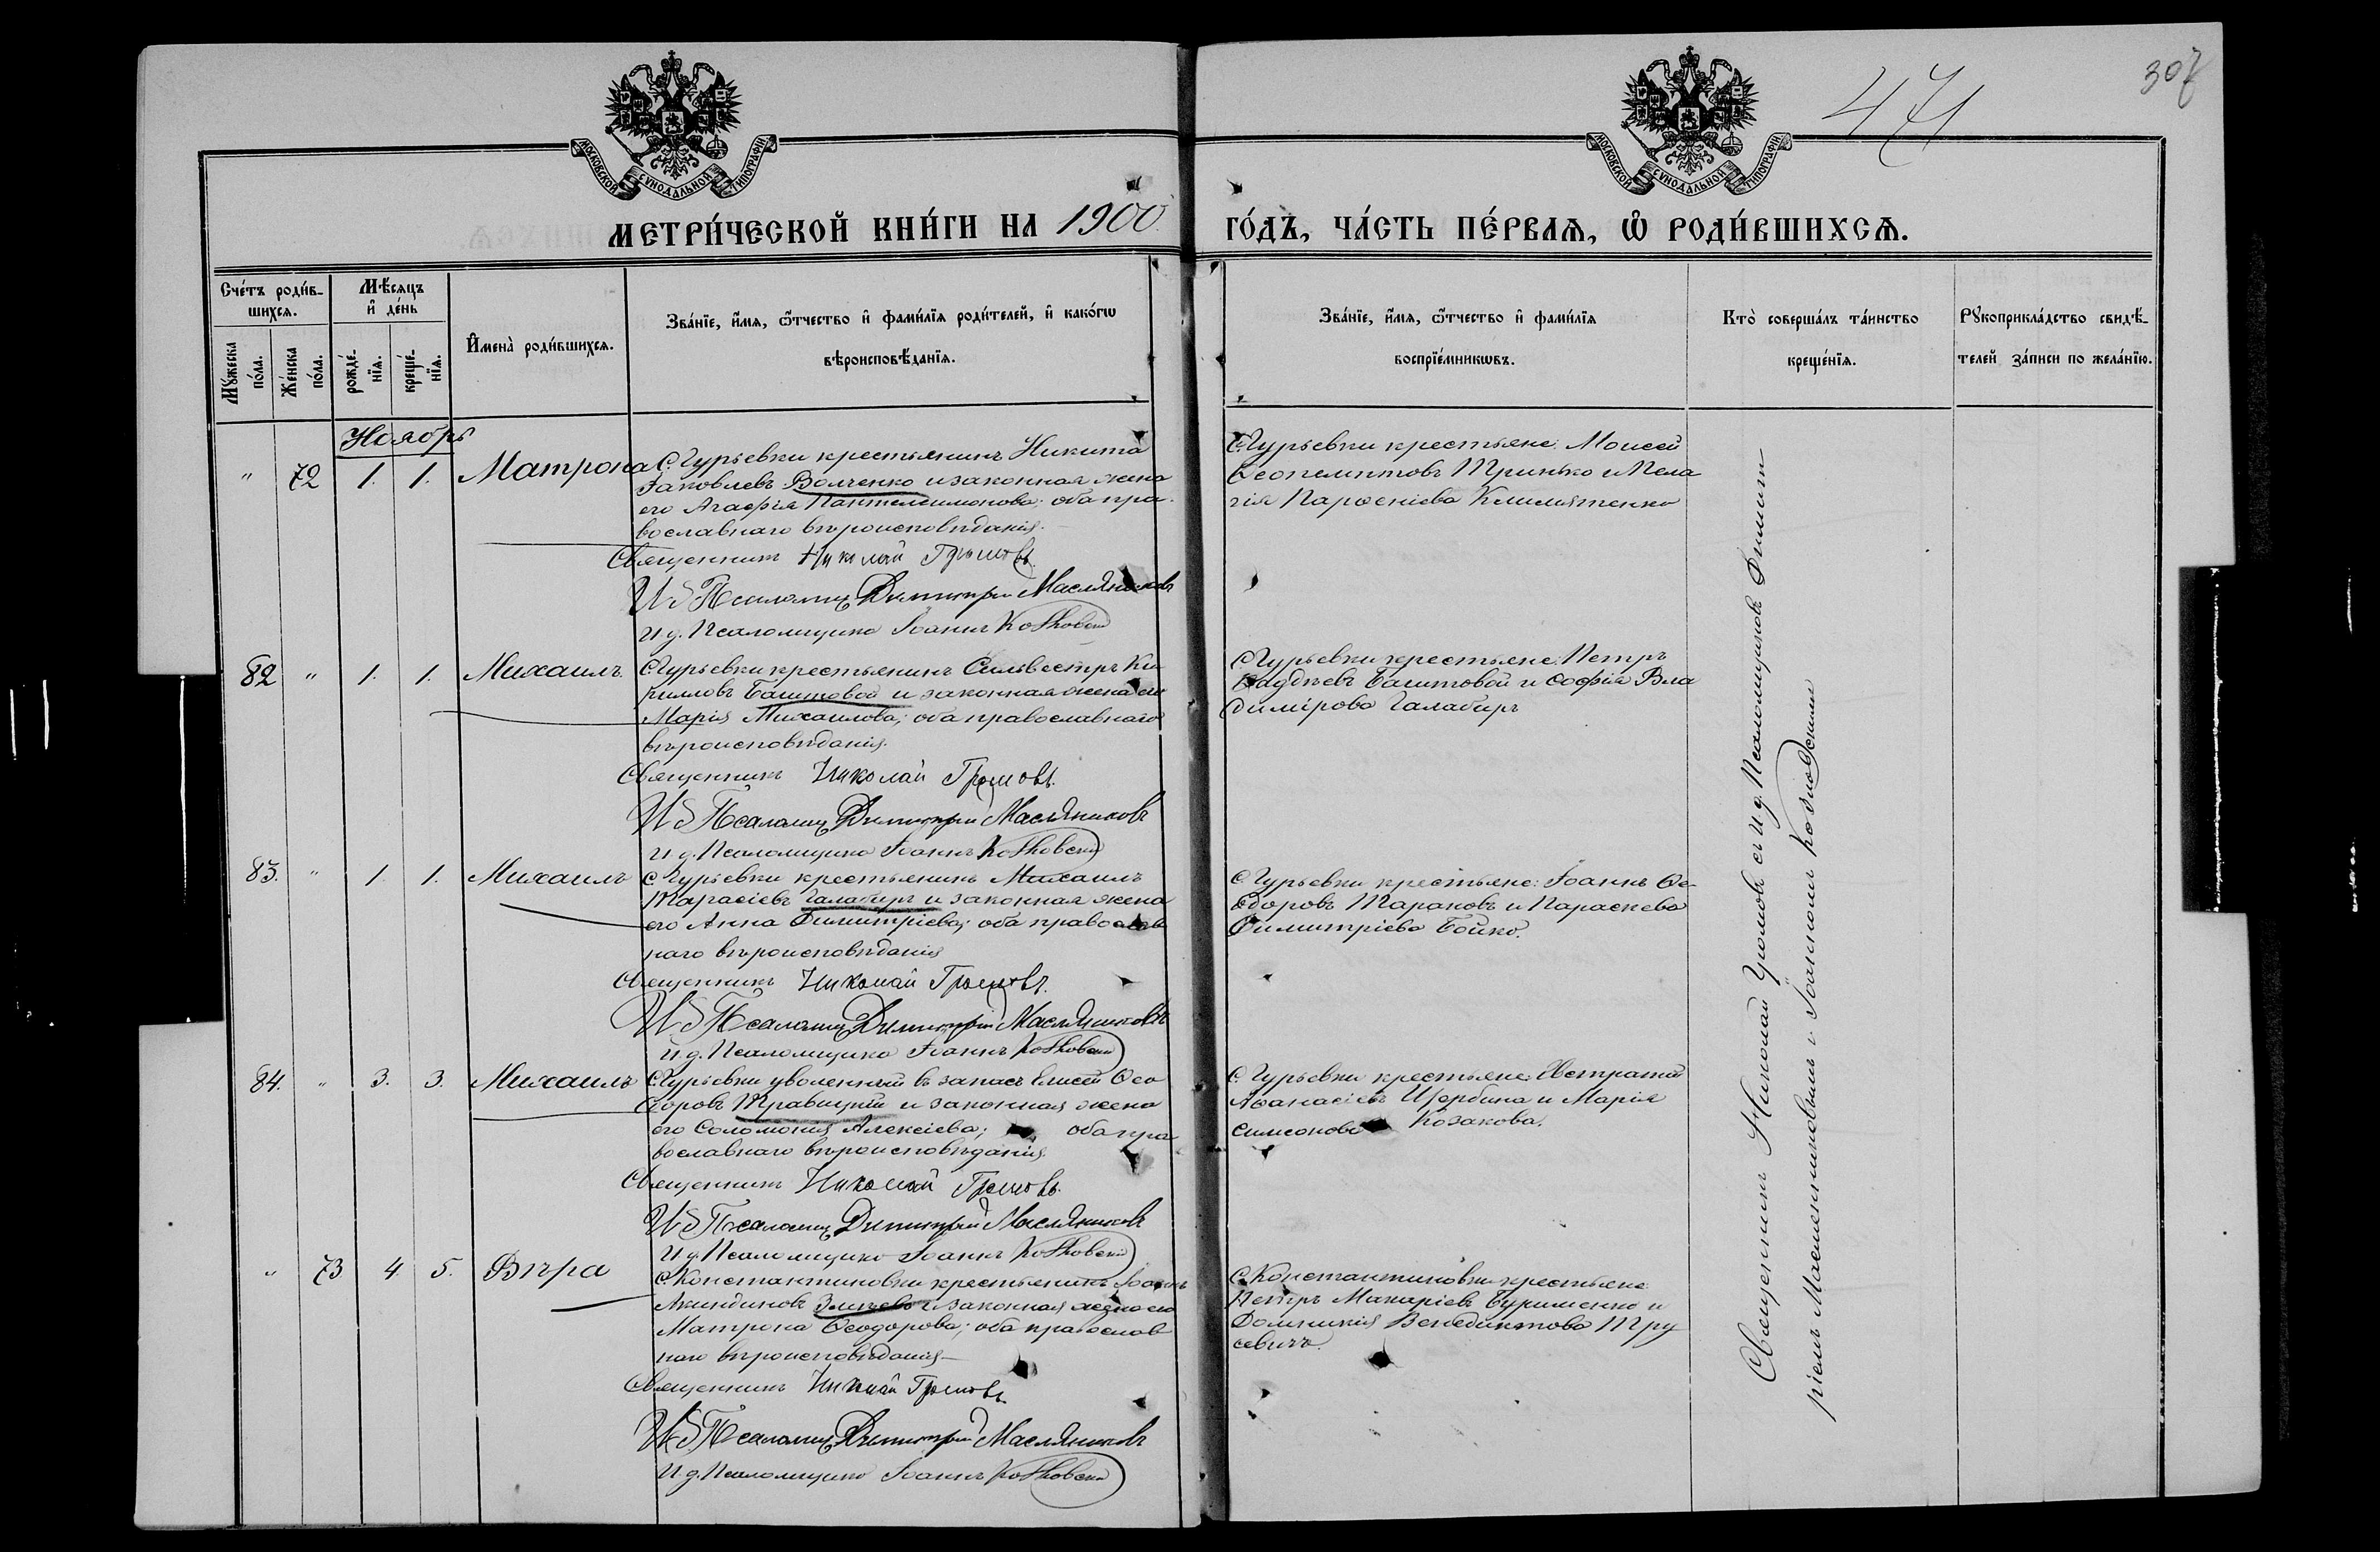 307
471
МОСКОВСКОЙ СѴНОДАЛЬНОЙ ТИПОГРАФІИ
МОСКОВСКОЙ СѴНОДАЛЬНОЙ ТИПОГРАФІИ
МЕТРИ́ЧЕСКОЙ КНИ́ГИ НА 1900 ГО́ДЪ, ЧА́СТЬ ПЕ́РВАѦ, Ѽ РОДИ́ВШИХСѦ.
Сче́тъ роди́в-
шихсѧ.
Мꙋ́жеска
по́ла.
Же́нска
по́ла.
Мѣ́сѧцъ
и҆ де́нь
рожде́-
нїѧ.
креще́-
нїѧ.
И҆мена̀ роди́вшихсѧ.
Зва́нїе, и҆́мѧ, ѻ҆́тчество и҆ фами́лїѧ роди́телей, и҆ како́гѡ
вѣроисповѣ́данїѧ.
Зва́нїе, и҆́мѧ, ѻ҆́тчество и҆ фами́лїѧ
воспрїе́мникѡвъ.
Кто̀ соверша́лъ та́инство
креще́нїѧ.
Рꙋкоприкла́дство свидѣ́-
телей за́писи по жела́нїю.
Ноябрь
" 72 1. 1. Матрона
С. Гурьевки крестьянинъ Никита
Іаковлевъ Волченко и законная жена
его Агафія Пантелеимонова; оба пра-
вославнаго вѣроисповѣданія.
Священникъ Николай Громовъ.
И д Псаломщ Димитрій Маслянниковъ
И. д. Псаломщика Іоаннъ
С. Гурьевки крестьяне: Моисей
Тринько и Пела
гія Парѳеніева Климятенко
82 " 1. 1. Михаилъ.
С. Гурьевки крестьянинъ Сильвестръ Ки-
рилловъ Баштовой и законная жена его
Марія Михаилова; оба православнаго
вѣроисповѣданія.
Священникъ Николай Громовъ.
И д Псаломщ Димитрій Маслянниковъ
И. д. Псаломщика Іоаннъ
С. Гурьевки крестьяне: Петръ
Ѳаддѣевъ Баштовой и Софія Вла
димірова Галабиръ
83. " 1. 1. Михаилъ
С. Гурьевки крестьянинъ Михаилъ
Тарасіевъ Галабиръ и законная жена
его Анна Димитріева; оба православ
наго вѣроисповѣданія
Священникъ Николай Громовъ.
И д Псаломщ Димитрій Маслянниковъ
И. д. Псаломщика Іоаннъ
С. Гурьевки крестьяне: Іоаннъ Ѳе-
одоровъ Тарановъ и Параскева
Димитріева Бойко.
84. " 3. 3. Михаилъ
С. Гурьевки уволенный въ запасъ Елисей Ѳео
доровъ Травицкій и законная жена
его Соломонія Алексіева; оба пра
вославнаго вѣроисповѣданія.
Священникъ Николай Громовъ.
И д Псаломщ Димитрій Маслянниковъ
И. д. Псаломщика Іоаннъ
С. Гурьевки крестьяне: Евстратій
Аѳанасіевъ Щербина и Марія
Симеонова Козакова.
" 73 4. 5. Вѣра
С. Константиновки крестьянинъ Іоаннъ
Акиндиновъ и законная жена его
Матрона Ѳеодорова; оба православ
наго вѣроисповѣданія
Священникъ Николай Громовъ.
И д Псаломщ Димитрій Маслянниковъ
И. д. Псаломщика Іоаннъ
С. Константиновки крестьяне
Петръ Макаріевъ Буришенко и
Домникія Венедиктова Тру
севичъ.
Священникъ Николай Громовъ съ И. д. Псаломщиковъ Димит-
ріемъ Маслянниковымъ и Іоанномъ